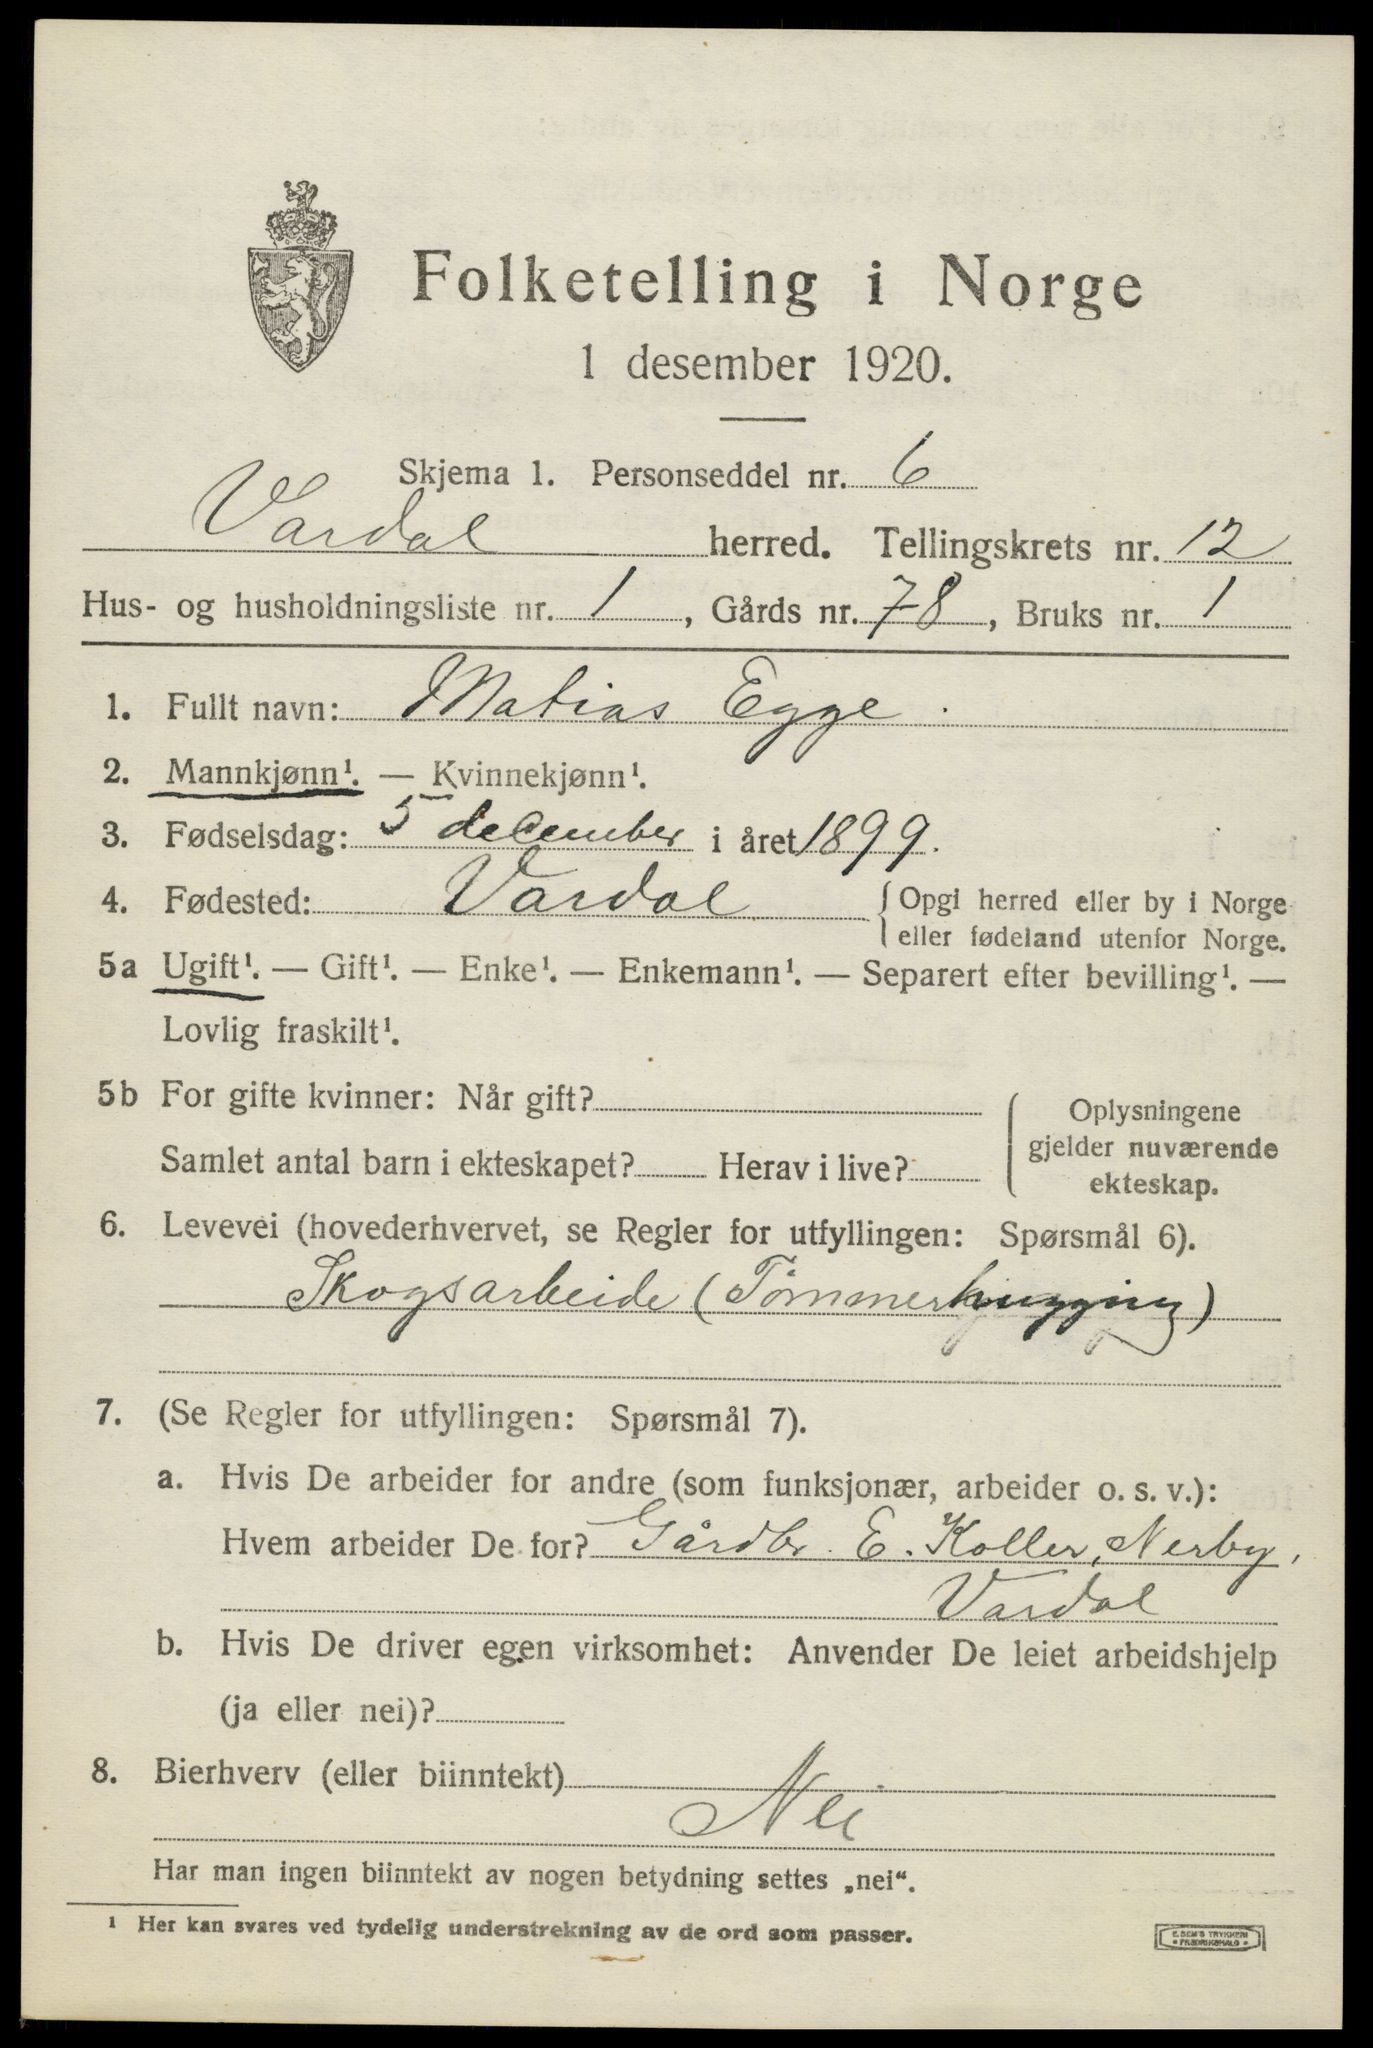 Folketelling i Norge
1 desember 1920.
Skjema 1. Personseddel nr. 6
Vardal herred. Tellingskrets nr. 12
Hus- og husholdningsliste nr. 1, Gårds nr. 78, Bruks nr. 1
1. Fullt navn: Matias Egge.
2. Mannkjønn¹. — Kvinnekjønn¹.
3. Fødselsdag: 5 december i året 1899.
4. Fødested: Vardal {Opgi herred eller by i Norge
eller fødeland utenfor Norge.
5a Ugift¹. — Gift¹. — Enke¹. — Enkemann¹. — Separert efter bevilling¹. —
Lovlig fraskilt¹.
5b For gifte kvinner: Når gift?
Oplysningene
gjelder nuværende
ekteskap.
Samlet antal barn i ekteskapet? Herav i live?
6. Levevei (hovederhvervet, se Regler for utfyllingen: Spørsmål 6).
Skogsarbeide (Tømmerhugging)
7. (Se Regler for utfyllingen: Spørsmål 7).
a. Hvis De arbeider for andre (som funksjonær, arbeider o. s. v.):
Hvem arbeider De for? Gårdbr. E. Koller, Nerby,
Vardal
b. Hvis De driver egen virksomhet: Anvender De leiet arbeidshjelp
(ja eller nei)?
8. Bierhverv (eller biinntekt)
Nei
Har man ingen biinntekt av nogen betydning settes „nei“.
¹ Her kan svares ved tydelig understrekning av de ord som passer.
E. SEM'S TRYKKERI
• FREDRIKSHALD •